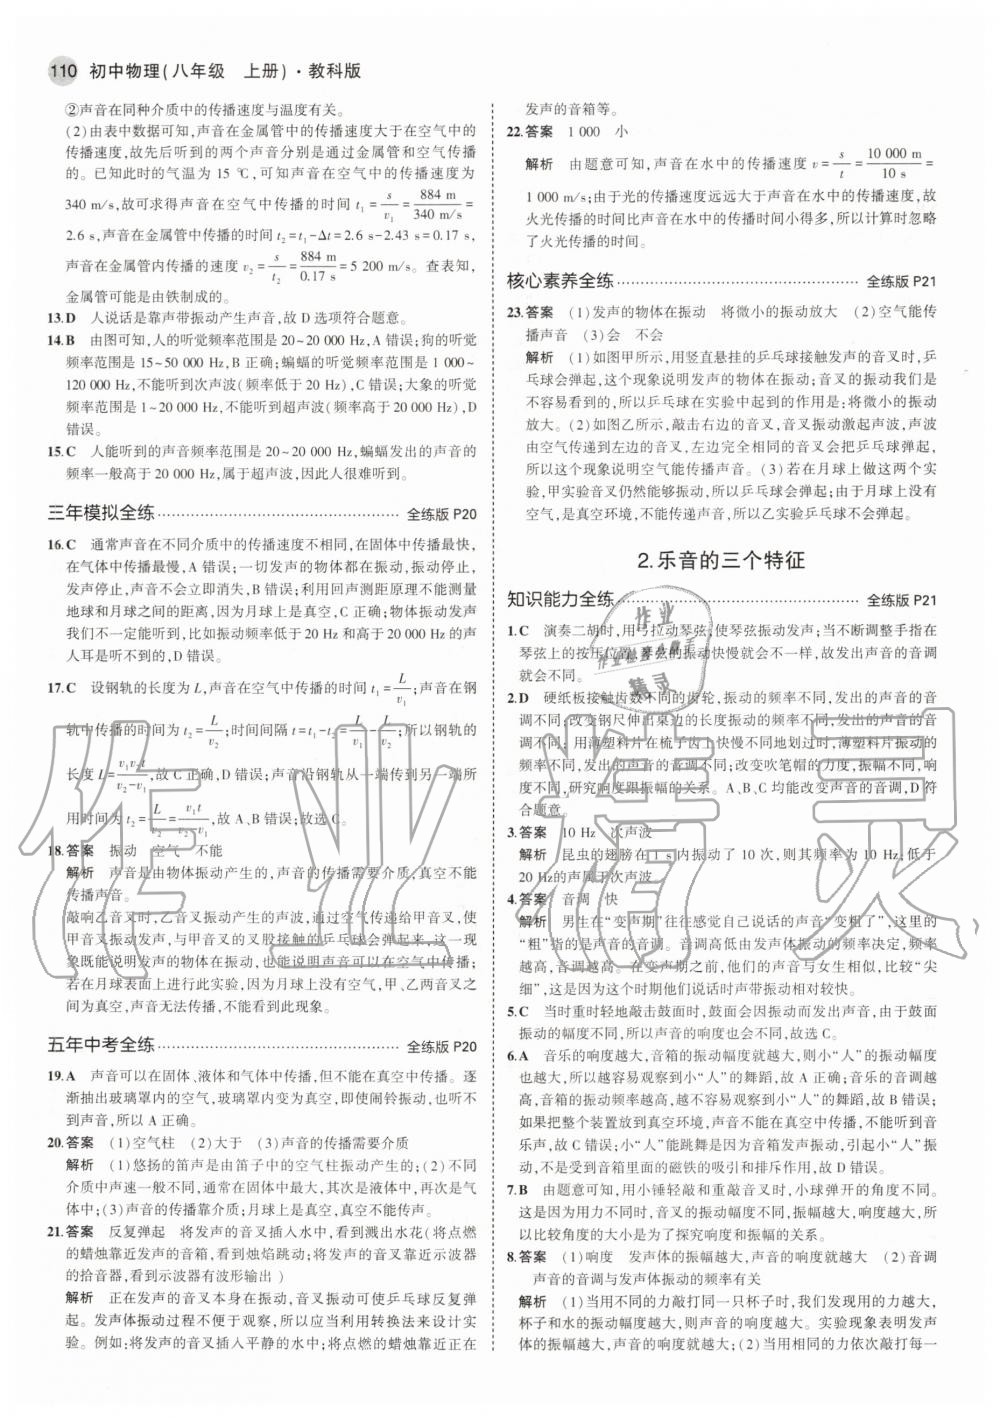 110 初中物理(八年级　上册)·教科版
②声音在同种介质中的传播速度与温度有关。
(2)由表中数据可知,声音在金属管中的传播速度大于在空气中的
传播速度,故先后听到的两个声音分别是通过金属管和空气传播
的。已知此时的气温为 15 ℃,可知声音在空气中的传播速度为
340 m/s,故可求得声音在空气中传播的时间 t₁=s/v₁=884 m/340 m/s=
2.6 s,声音在金属管中传播的时间 t₂=t₁-Δt=2.6 s-2.43 s=0.17 s,
声音在金属管内传播的速度 v₂=s/t₂=884 m/0.17 s=5 200 m/s。查表知,
金属管可能是由铁制成的。
13.D　人说话是靠声带振动产生声音,故 D 选项符合题意。
14.B　由图可知,人的听觉频率范围是 20~20 000 Hz,A 错误;狗的听觉
频率范围是 15~50 000 Hz,B 正确;蝙蝠的听觉频率范围是 1 000~
120 000 Hz,不能听到次声波(频率低于 20 Hz),C 错误;大象的听觉
频率范围是 1~20 000 Hz,不能听到超声波(频率高于 20 000 Hz),D
错误。
15.C　人能听到的声音频率范围是 20~20 000 Hz,蝙蝠发出的声音的
频率一般高于 20 000 Hz,属于超声波,因此人很难听到。
三年模拟全练 全练版 P20
16.C　通常声音在不同介质中的传播速度不相同,在固体中传播最快,
在气体中传播最慢,A 错误;一切发声的物体都在振动,振动停止,
发声停止,声音不会立即消失,B 错误;利用回声测距原理不能测量
地球和月球之间的距离,因为月球上是真空,C 正确;物体振动发声
我们不一定能听到,比如振动频率低于 20 Hz 和高于 20 000 Hz 的声
人耳是听不到的,D 错误。
17.C　设钢轨的长度为 L,声音在空气中传播的时间 t₁=L/v₁;声音在钢
轨中传播的时间为 t₂=L/v₂;时间间隔 t=t₁-t₂=L/v₁-L/v₂;所以钢轨的
长度 L=v₁v₂t/v₂-v₁,故 C 正确,D 错误;声音沿钢轨从一端传到另一端所
用时间为 t₂=L/v₂=v₁t/v₂-v₁,故 A、B 错误;故选 C。
18.答案　振动　空气　不能
解析　声音是由物体振动产生的,声音的传播需要介质,真空不能
传播声音。
敲响乙音叉时,乙音叉振动产生的声波,通过空气传递给甲音叉,使
甲音叉振动发声,与甲音叉的叉股接触的乒乓球会弹起来,这一现
象既能说明发声的物体在振动,也能说明声音可以在空气中传播;
若在月球表面上进行此实验,因为月球上没有空气,甲、乙两音叉之
间为真空,声音无法传播,不能看到此现象。
五年中考全练 全练版 P20
19.A　声音可以在固体、液体和气体中传播,但不能在真空中传播。逐
渐抽出玻璃罩内的空气,玻璃罩内变为真空,即使闹铃振动,也听不
到声音,所以 A 正确。
20.答案　(1)空气柱　(2)大于　(3)声音的传播需要介质
解析　(1)悠扬的笛声是由笛子中的空气柱振动产生的;(2)不同
介质中声速一般不同,通常在固体中最大,其次是液体中,再次是气
体中;(3)声音的传播靠介质;月球上是真空,真空不能传声。
21.答案　反复弹起　将发声的音叉插入水中,看到溅出水花(将点燃
的蜡烛靠近发声的音箱,看到烛焰跳动;将发声的音叉靠近示波器
的拾音器,看到示波器有波形输出)
解析　正在发声的音叉本身在振动,音叉振动可使乒乓球反复弹
起。发声体振动过程不便于观察,所以应当利用转换法来设计实
验。例如:将发声的音叉插入平静的水中;将点燃的蜡烛靠近正在
发声的音箱等。
22.答案　1 000　小
解析　由题意可知,声音在水中的传播速度 v=s/t=10 000 m/10 s=
1 000 m/s;由于光的传播速度远远大于声音在水中的传播速度,故
火光传播的时间比声音在水中的传播时间小得多,所以计算时忽略
了火光传播的时间。
核心素养全练 全练版 P21
23.答案　(1)发声的物体在振动　将微小的振动放大　(2)空气能传
播声音　(3)会　不会
解析　(1)如图甲所示,用竖直悬挂的乒乓球接触发声的音叉时,乒
乓球会弹起,这个现象说明发声的物体在振动;音叉的振动我们是
不容易看到的,所以乒乓球在实验中起到的作用是:将微小的振动
放大。(2)如图乙所示,敲击右边的音叉,音叉振动激起声波,声波
由空气传递到左边的音叉,左边完全相同的音叉会把乒乓球弹起,
所以这个现象说明空气能传播声音。(3)若在月球上做这两个实
验,甲实验音叉仍然能够振动,所以乒乓球会弹起;由于月球上没有
空气,是真空环境,不能传递声音,所以乙实验乒乓球不会弹起。
2.乐音的三个特征
知识能力全练 全练版 P21
1.C　演奏二胡时,用弓拉动琴弦,使琴弦振动发声;当不断调整手指在
琴弦上的按压位置,琴弦的振动快慢就会不一样,故发出声音的音调
就会不同。
2.D　硬纸板接触齿数不同的齿轮,振动的频率不同,发出的声音的音
调不同;改变钢尺伸出桌边的长度振动频率不同,发出的声音的音
调不同;用薄塑料片在梳子齿上快慢不同地划过时,薄塑料片振动的
频率不同,发出的声音的音调不同;改变吹笔帽的力度,振幅不同,响
度不同,研究响度跟振幅的关系。A、B、C 均能改变声音的音调,D 符
合题意。
3.答案　10 Hz　次声波
解析　昆虫的翅膀在 1 s 内振动了 10 次,则其频率为 10 Hz,低于
20 Hz的声属于次声波。
4.答案　音调　快
解析　男生在“变声期”往往感觉自己说话的声音“变粗了”,这里的
“粗”指的是声音的音调。音调高低由发声体振动的频率决定,频率
越高,音调越高。在变声期之前,他们的声音与女生相似,比较“尖
细”,这是因为这个时期他们说话时声带振动相对较快。
5.C　当时重时轻地敲击鼓面时,鼓面会因振动而发出声音,由于鼓面
振动的幅度不同,所以声音的响度也会不同,故选 C。
6.A　音乐的响度越大,音箱的振动幅度就越大,则小“人”的振动幅度
也越大,所以越容易观察到小“人”的舞蹈,故 A 正确;音乐的音调越
高,音箱的振动频率越大,不易观察到小“人”的舞蹈,故 B 错误;
如果把整个装置放到真空环境,声音不能在真空中传播,则听不到音
乐声,故 C 错误;小“人”能跳舞是因为音箱发声振动,引起小“人”振
动,不是受到音箱里面的磁铁的吸引和排斥作用,故 D 错误。
7.B　由题意可知,用小锤轻敲和重敲音叉时,小球弹开的角度不同。
这是因为用力大小不同,音叉的振动幅度不同,产生声音的响度不同,所
以比较角度的大小是为了探究响度和振幅的关系。
8.答案　(1)响度　发声体的振幅越大,声音的响度就越大　(2)音调
声音的音调与发声体振动的频率有关
解析　(1)当用不同的力敲打同一只杯子时,我们发现用的力越大,
杯子和水的振动幅度越大,则声音的响度越大。实验现象表明发声
体的振幅越大,声音的响度就越大;(2)当用相同的力依次敲打每一
作业精灵